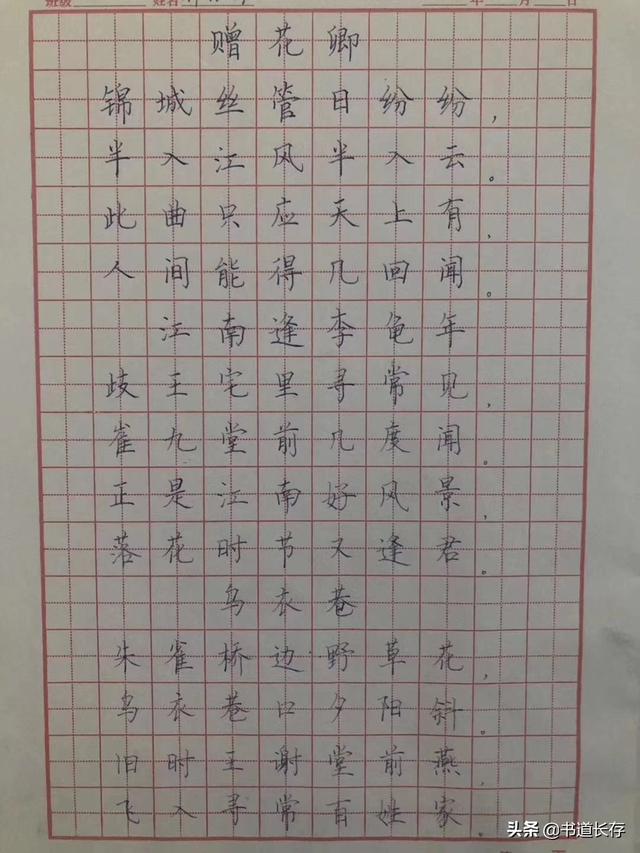 班级 姓名 年 月 日
赠花卿
锦城丝管日纷纷，
半入江风半入云。
此曲只应天上有，
人间能得几回闻。
江南逢李龟年
歧王宅里寻常见，
崔九堂前几度闻。
正是江南好风景，
落花时节又逢君。
乌衣巷
朱雀桥边野草花，
乌衣巷口夕阳斜。
旧时王谢堂前燕，
飞入寻常百姓家。
头条 @书道长存